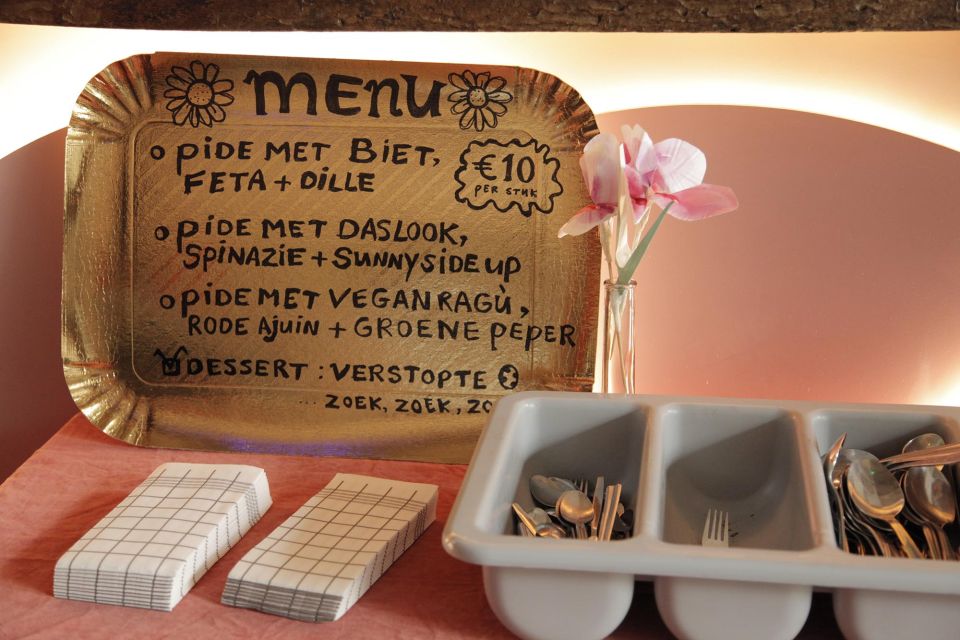 MENU
PIDE MET BIET,
FETA + DILLE
€10
PER STUK
PIDE MET DASLOOK,
SPINAZIE + SUNNYSIDE UP
PIDE MET VEGAN RAGÙ,
RODE AJUIN + GROENE PEPER
DESSERT : VERSTOPTE
... ZOEK, ZOEK,